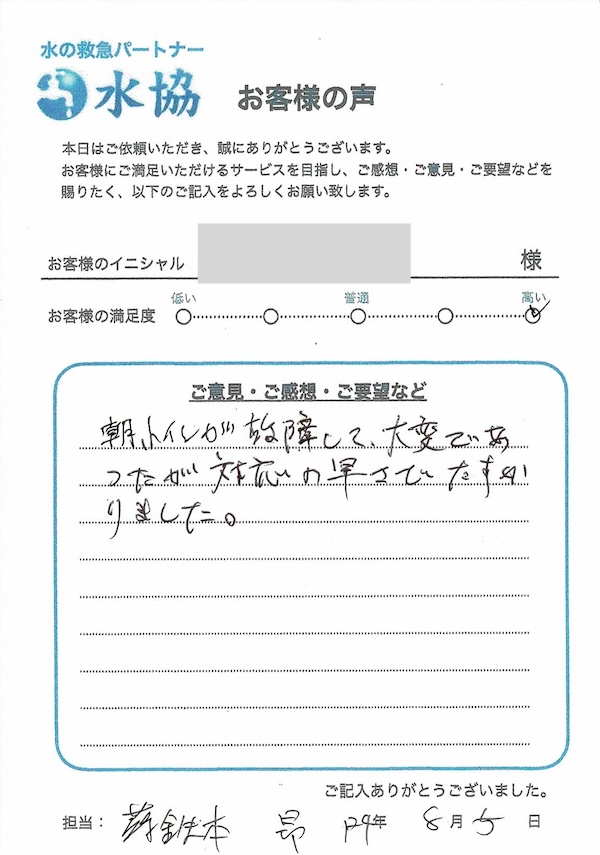 水の救急パートナー
水協 お客様の声
本日はご依頼いただき、誠にありがとうございます。
お客様にご満足いただけるサービスを目指し、ご感想・ご意見・ご要望などを
賜りたく、以下のご記入をよろしくお願い致します。
お客様のイニシャル 様
低い 普通 高い
お客様の満足度
ご意見・ご感想・ご要望など
朝トイレが故障して、大変であ
ったが対応の早さでたすか
りました。
ご記入ありがとうございました。
担当: 本 昂 年 8月 5 日